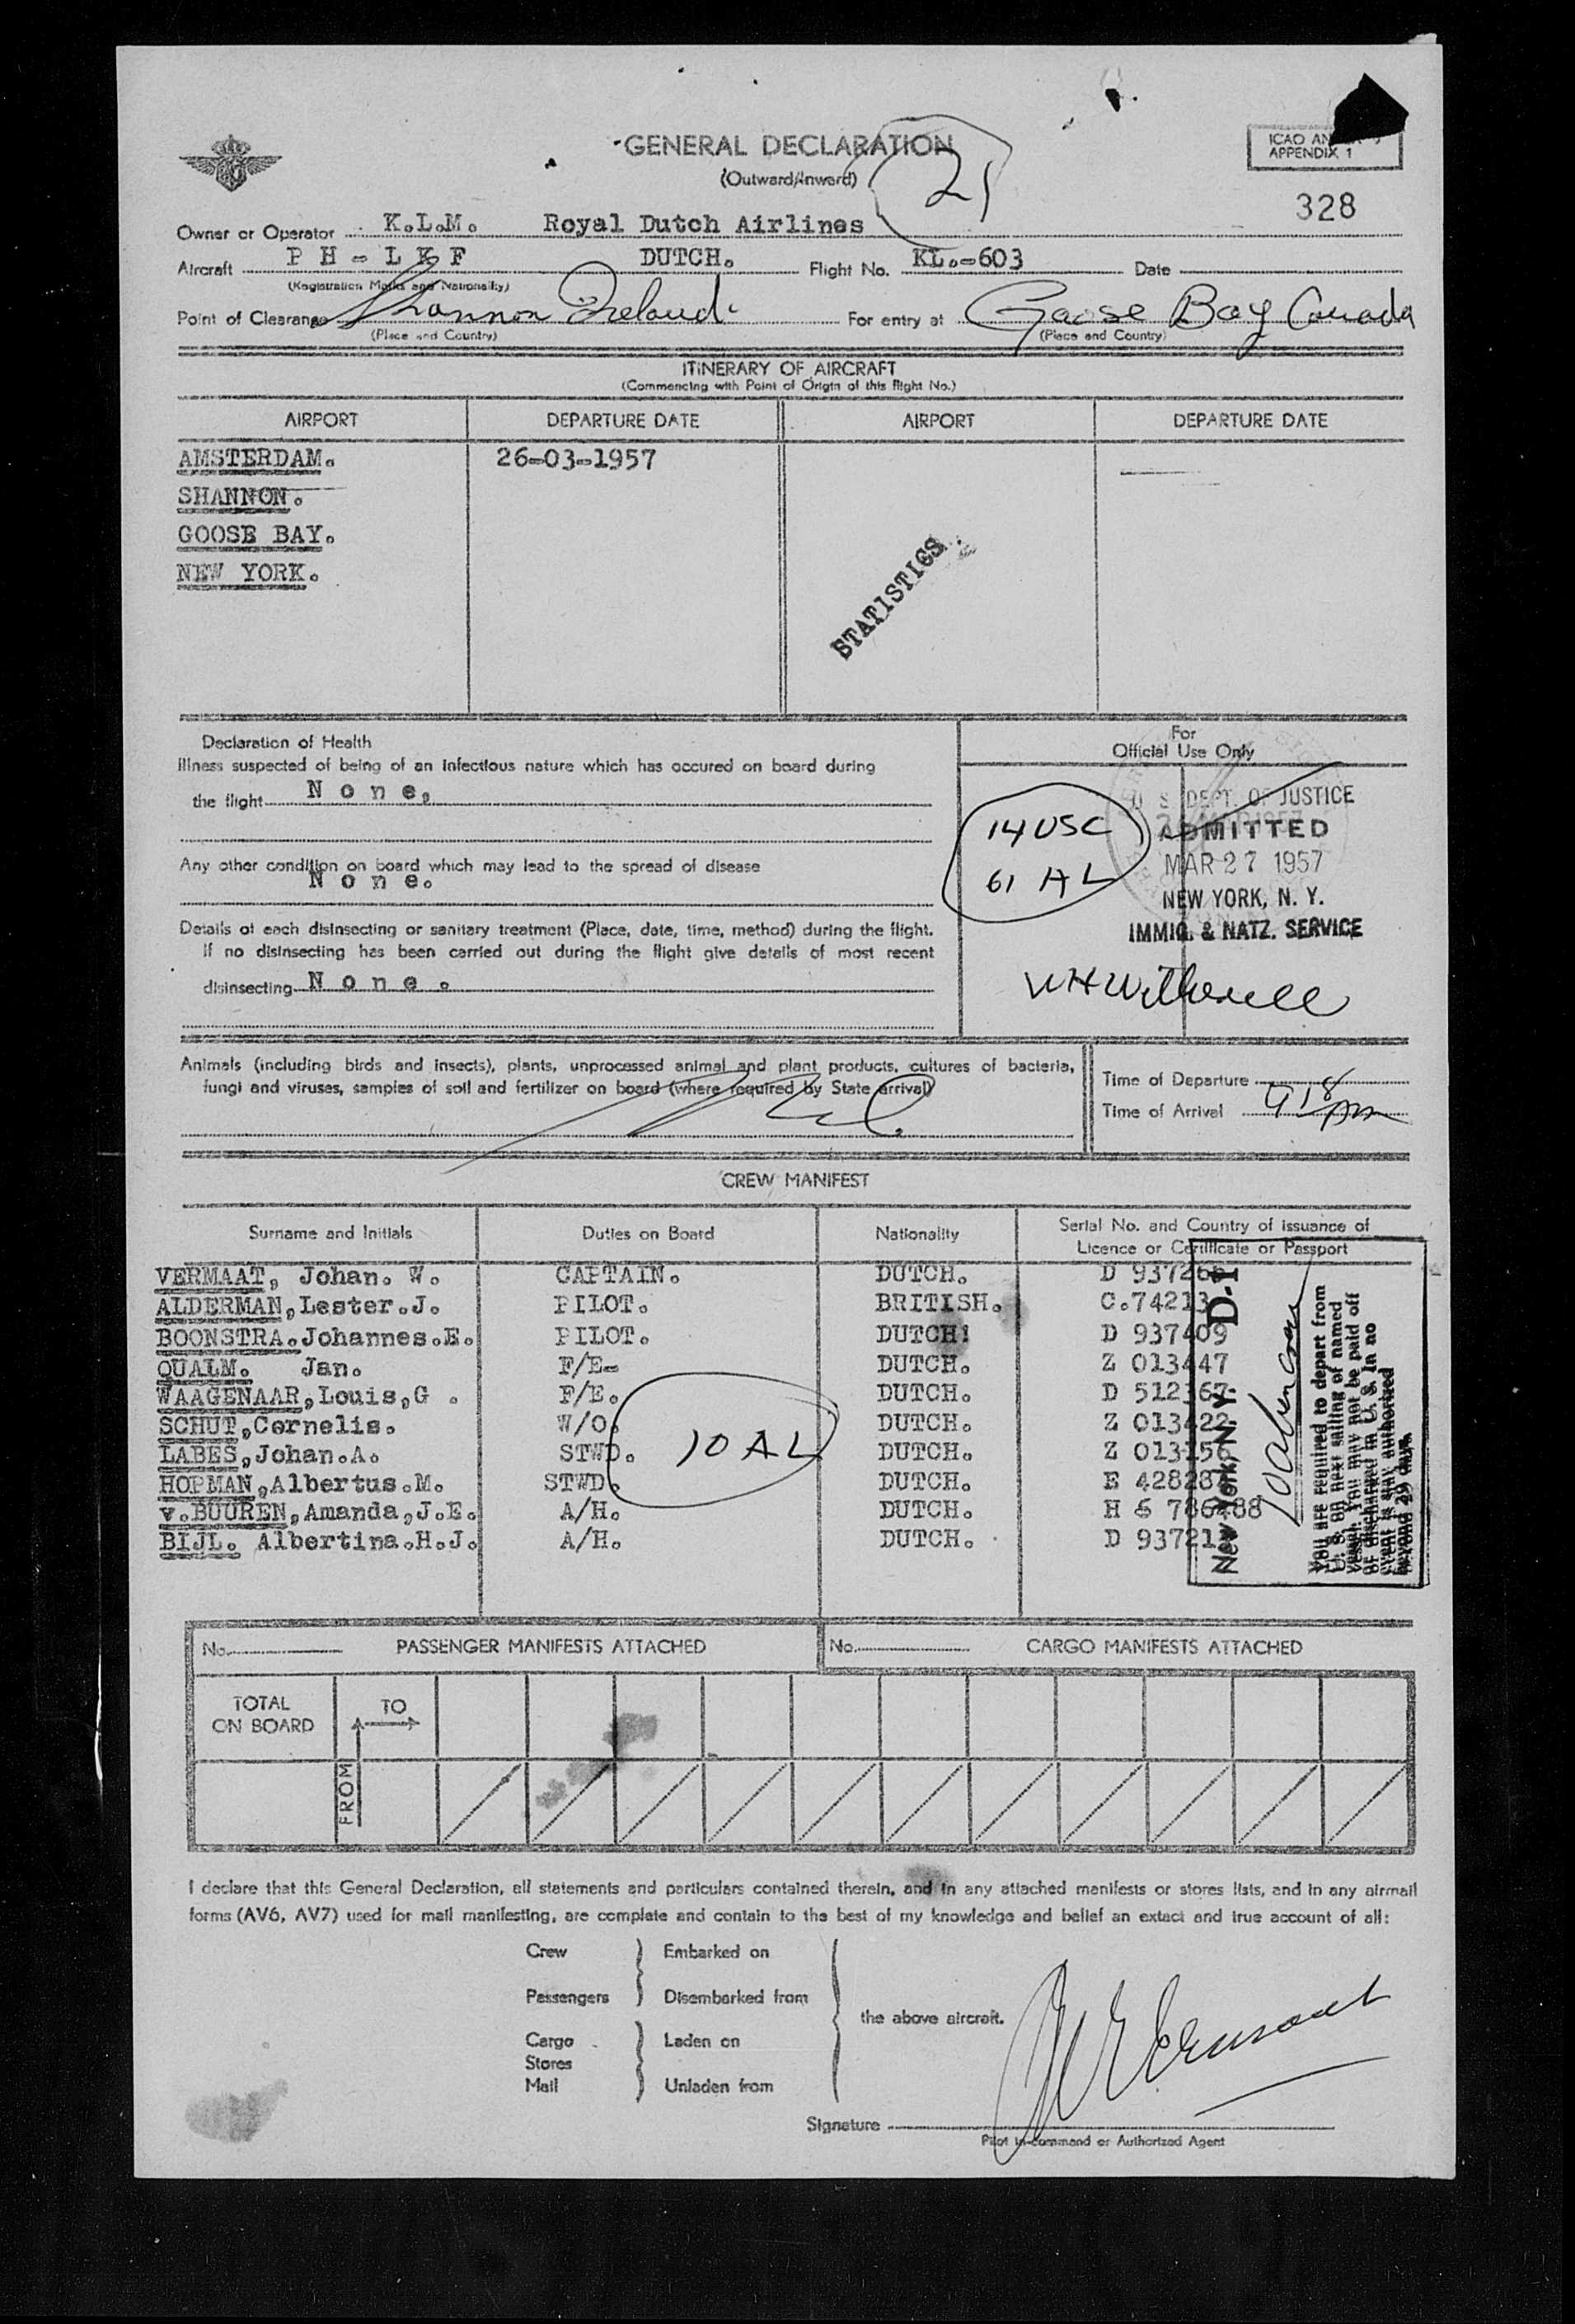 GENERAL DECLARATION
(Outward/Inward)
21
ICAO
APPENDIX 1
328
Owner or Operator K.L.M. Royal Dutch Airlines
Aircraft P H - L K F DUTCH. Flight No. KL.-603 Date
(Registration Marks and Nationality)
Point of Clearance Shannon Ireland For entry at Goose Bay Canada
(Place and Country) (Place and Country)
ITINERARY OF AIRCRAFT
(Commencing with Point of Origin of this flight No.)
AIRPORT DEPARTURE DATE AIRPORT DEPARTURE DATE
AMSTERDAM. 26-03-1957
SHANNON.
GOOSE BAY.
NEW YORK.
STATISTICS
Declaration of Health
Illness suspected of being of an infectious nature which has occured on board during
the flight N o n e,
Any other condition on board which may lead to the spread of disease
N o n e.
Details of each disinsecting or sanitary treatment (Place, date, time, method) during the flight.
If no disinsecting has been carried out during the flight give details of most recent
disinsecting N o n e .
For
Official Use Only
14 USC
61 AL
U S DEPT. OF JUSTICE
ADMITTED
MAR 27 1957
NEW YORK, N. Y.
IMMIG. & NATZ. SERVICE
Animals (including birds and insects), plants, unprocessed animal and plant products, cultures of bacteria,
fungi and viruses, samples of soil and fertilizer on board (where required by State arrival)
Time of Departure
Time of Arrival 918 AM
CREW MANIFEST
Surname and Initials Duties on Board Nationality Serial No. and Country of issuance of
Licence or Certificate or Passport
VERMAAT, Johan. W. CAPTAIN. DUTCH. D
ALDERMAN,Lester.J. PILOT. BRITISH. C.74213
BOONSTRA.Johannes.E. PILOT. DUTCH. D 937409
QUALM. Jan. F/E- DUTCH. Z 013447
WAAGENAAR,Louis,G . F/E. DUTCH. D 512367
SCHUT,Cornelis. W/O. DUTCH. Z 013422
LABES,Johan.A. STWD. DUTCH. Z 013156
HOPMAN,Albertus.M. STWD. DUTCH. E
v.BUUREN,Amanda,J.E. A/H. DUTCH. H
BIJL. Albertina.H.J. A/H. DUTCH. D
10 AL
New York, N. Y. D-1
You are required to depart from
U. S. on next sailing of named
vessel. You may not be paid off
or discharged in U. S. In no
event is stay authorized
beyond 29 days.
No. PASSENGER MANIFESTS ATTACHED No. CARGO MANIFESTS ATTACHED
TOTAL
ON BOARD
TO
FROM
I declare that this General Declaration, all statements and particulars contained therein, and in any attached manifests or stores lists, and in any airmail
forms (AV6, AV7) used for mail manifesting, are complete and contain to the best of my knowledge and belief an extact and true account of all:
Crew Embarked on
Passengers Disembarked from
the above aircraft.
Cargo Laden on
Stores
Mail Unladen from
Signature
Pilot in-command or Authorized Agent